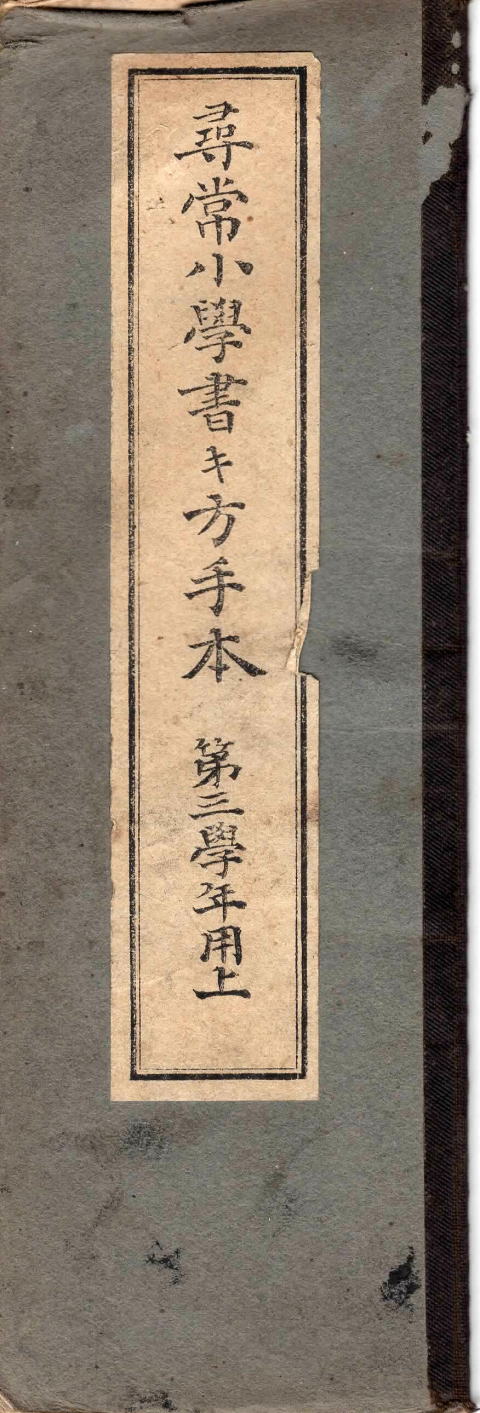 尋常小學書キ方手本 第三學年用上